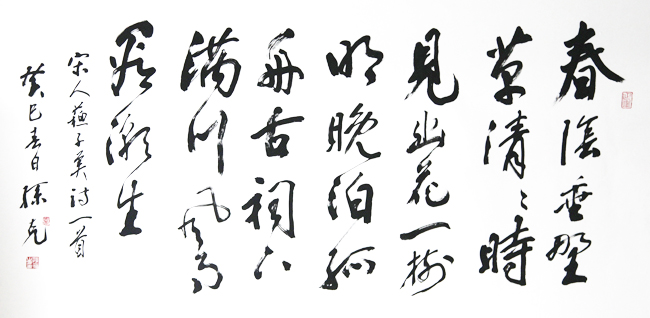 春陰垂野
草清〻時
見幽花一樹
明晚泊孤
舟古祠下
滿川風雨
看潮生
宋人蘇子美詩一首
癸巳春日孫克